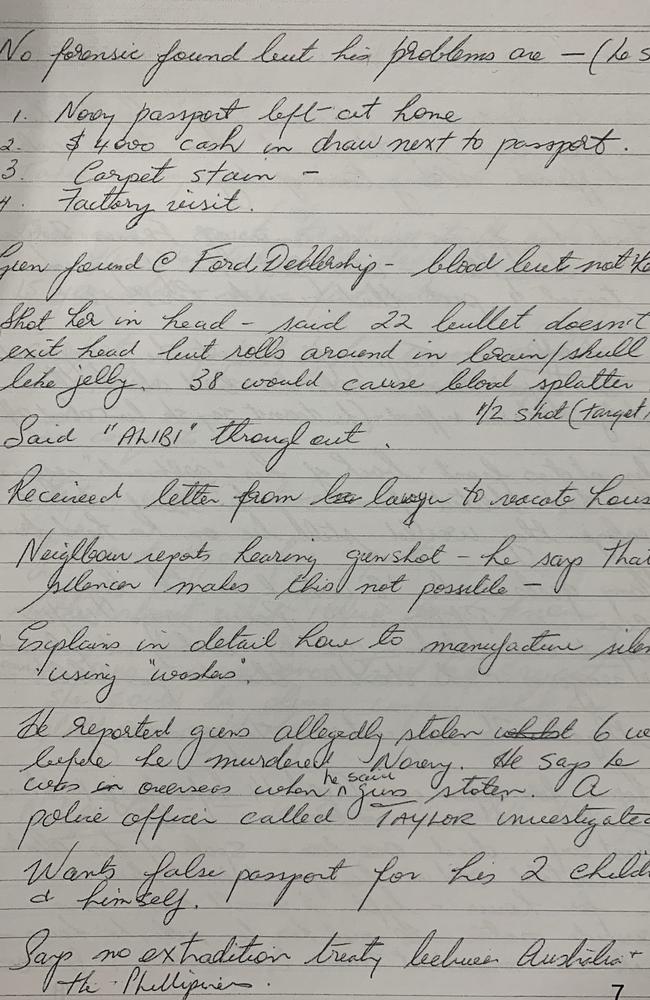 No forensic found but his problems are — (he s
1. Novy passport left at home
2. $4000 cash in draw next to passport.
3. Carpet stain —
4. Factory visit.
Gun found @ Ford Deblership - blood but not
Shot her in head - said 22 bullet doesn't
exit head but rolls around in brain/skull
like jelly. 38 would cause blood splatter
1/2 shot (target
Said "ALIBI" throughout.
Received letter from lawyer to vacate hous
Neighbour reports hearing gunshot - he says that
silencer makes this not possible —
Explains in detail how to manufacture silen
using "washers".
He reported guns allegedly stolen whilst 6 w
before he murdered Novy. He says he
was in overseas when he said guns stolen. A
police officer called TAYLOR investigated
Wants false passport for his 2 child
& himself.
Says no extradition treaty between Australia +
the Phillipines.
7